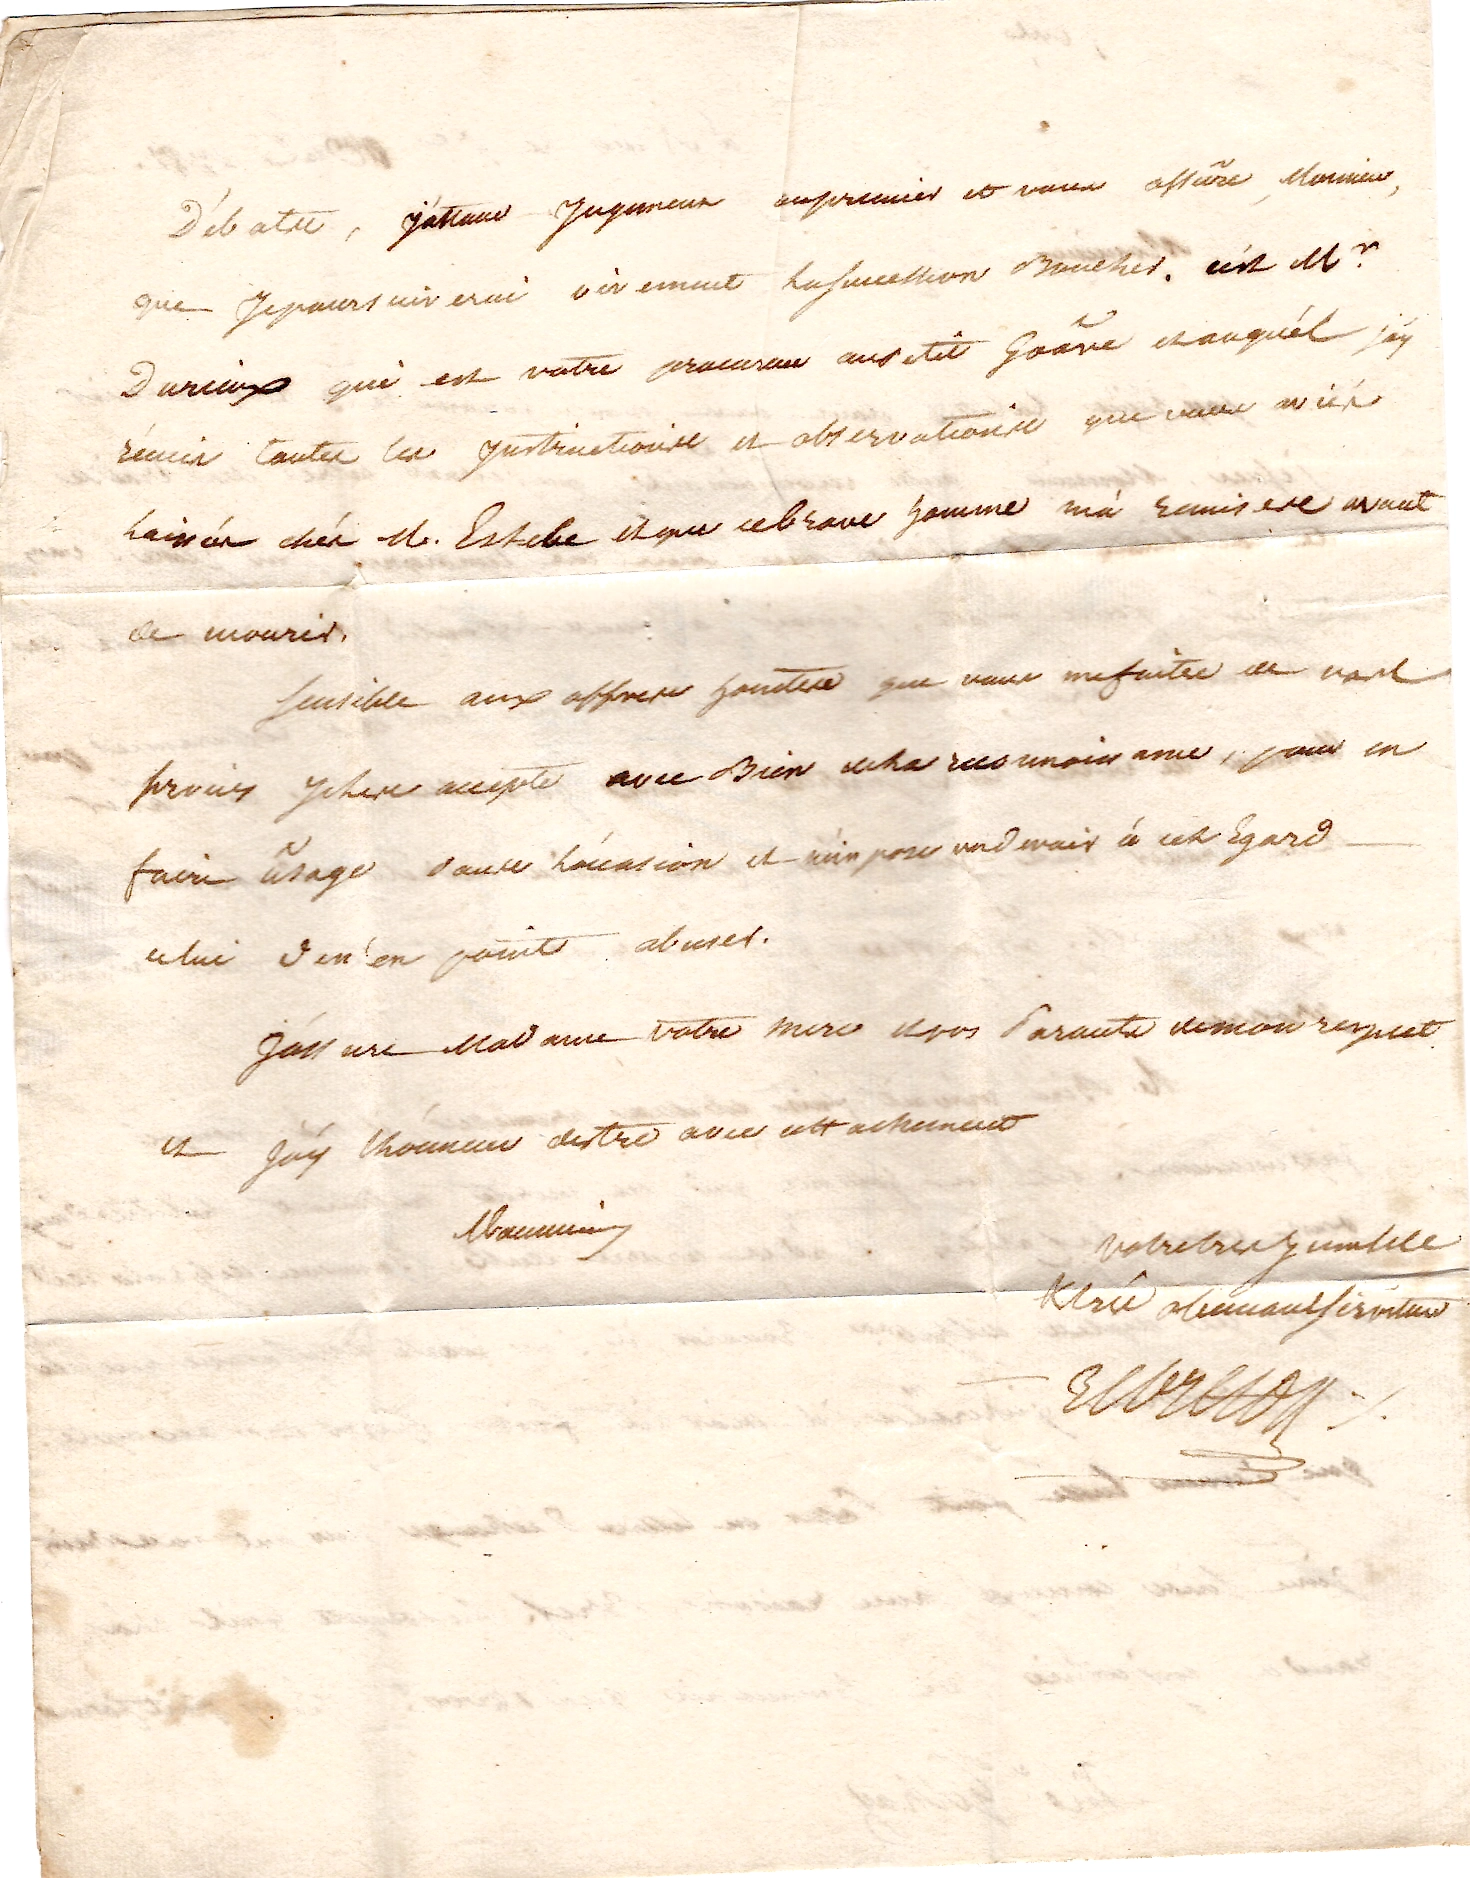 Débatre, j'attans Jugement aupremier et vous assûre, Monsieur,
que Jepoursuiverai vivement lasuccession Boucher. c'est Mr.
Durieux qui est votre procureur aupetit Goâve etauquél j'ay
rémis toutes les Jnstructions et observations que vous aviéz
laissées chéz M. Estebe etque cebrave homme m'à remises avant
de mourir.
Sensible aux offres honnetes que vous mefaites de vos
services Jeles accepte avec Bien dela reconnoissance, pour en
faire ûsage dans l'ócasion et m'impose undevoir à cet Egard
celui den'en point abuser.
J'assure Madame votre mere etvos Parents demon respect
et j'ay l'hónneur destre avec attachement
Monsieur
Votretres humble
&tres obeissant Serviteur